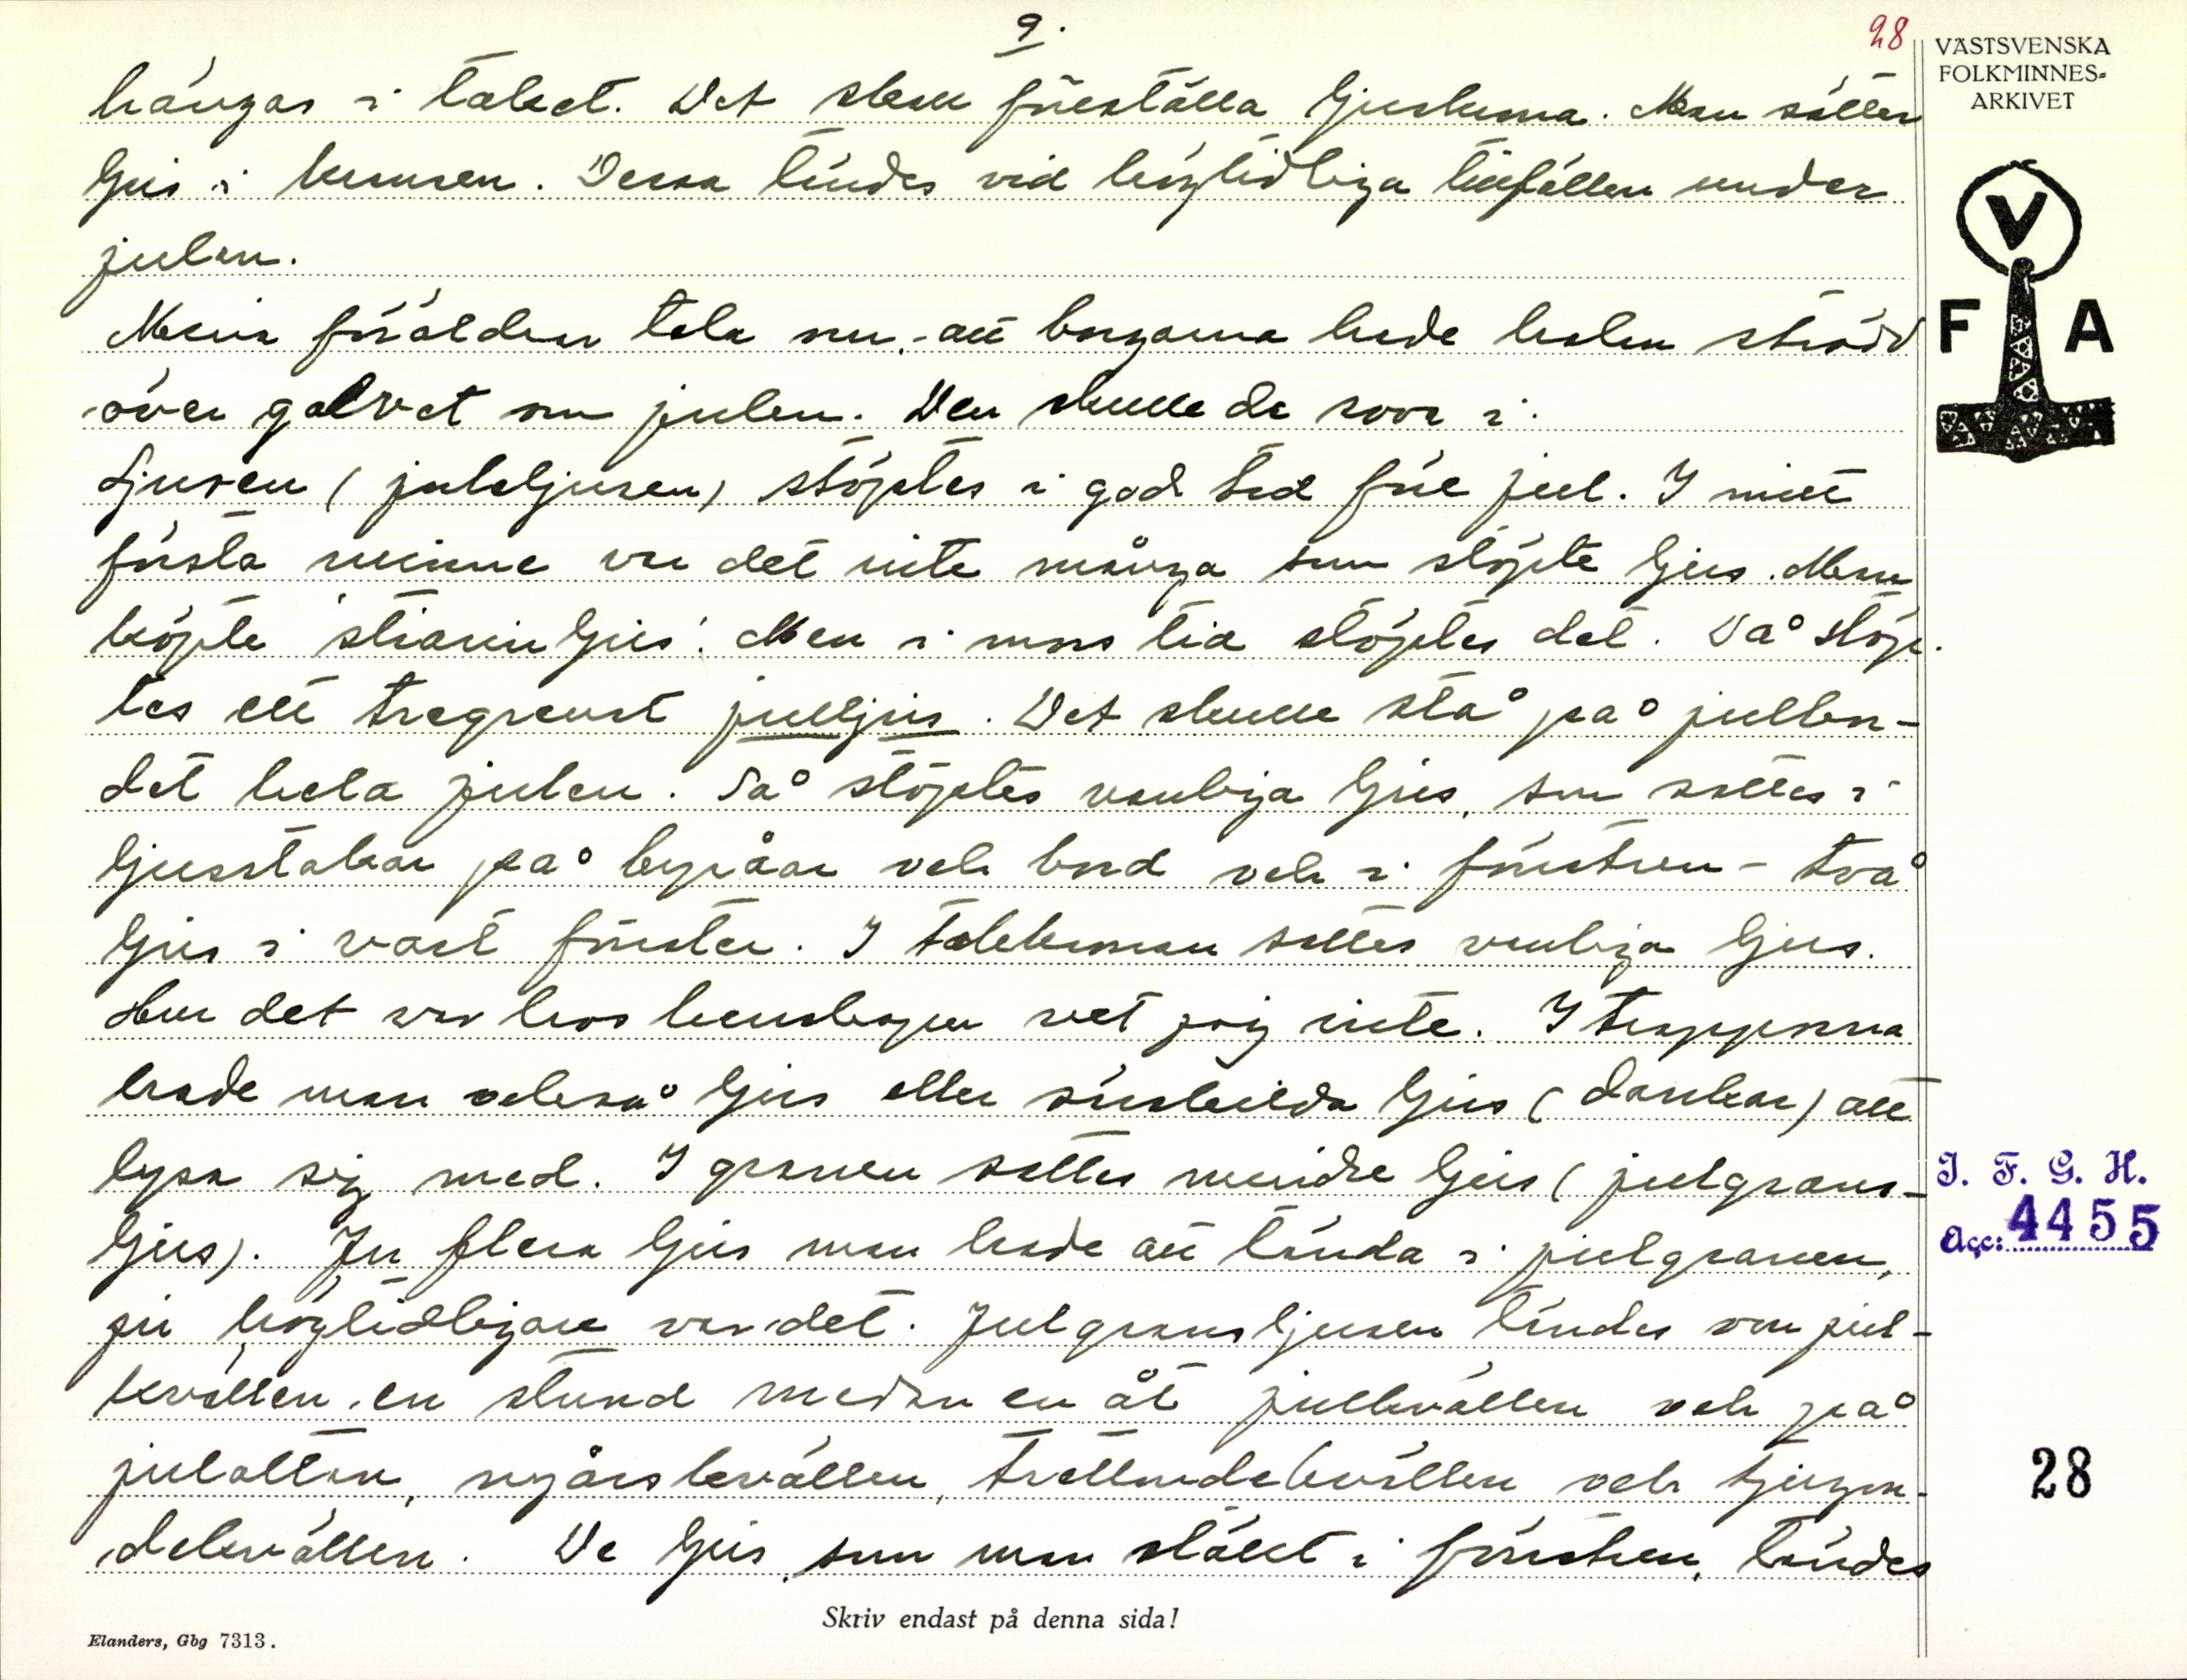 9.
28
VÄSTSVENSKA
FOLKMINNES-
ARKIVET
hängas i taket. Det skall föreställa ljuskrona. Man sätter
ljus i kronan. Dessa tändes vid högtidliga tillfällen under
julen.
V
F A
Mina föräldrar tala om, att borgarna hade halm strödd
över golvet om julen. Den skulle de sova i.
Ljusen (julaljusen) stöptes i god tid före jul. I mitt
första minne var det inte många som stöpte ljus. Man
köpte "stiarinljus". Men i mors tid stöptes det. Då stöp-
tes ett tregrenat julljus. Det skulle stå på julbor-
det hela julen. Så stöptes vanliga ljus, som sattes i
ljusstakar på byråar och bord och i fönstren - två
ljus i vart fönster. I takkronan sattes vanliga ljus.
Hur det var hos herrskapen vet jag inte. I trapporna
hade man också ljus eller särskilda ljus (dankar) att
lysa sig med. I granen sattes mindre ljus (julgrans-
ljus). Ju flera ljus man hade att tända i julgranen,
ju högtidligare var det. Julgransljusen tändes om jul-
kvällen, en stund medan en åt julkvällen och på
julottan, nyårskvällen, trettondekvällen och tjugon-
dekvällen. De ljus, som man ställt i fönstren, tändes
I. F. G. H.
Acc: 4455
28
Skriv endast på denna sida!
Elanders, Gbg 7313.